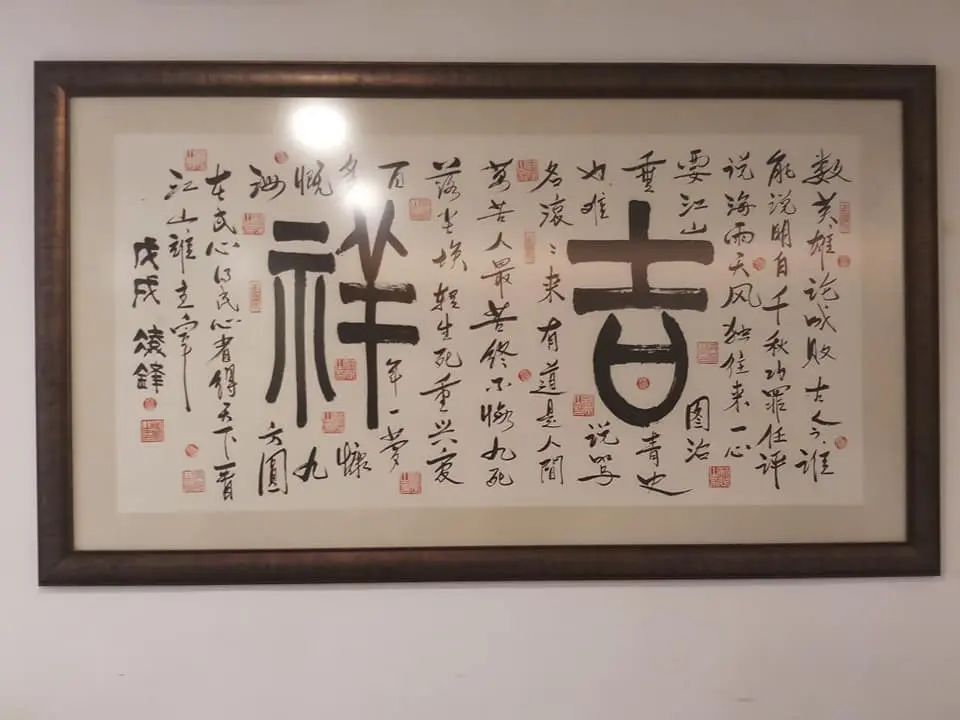 吉祥
数英雄论成败古今谁
能说明白千秋功罪任评
说海雨天风独往来一心
要江山图治
垂青史
也难说骂
名滚滚来有道是人间
萬苦人最苦终不悔九死
落尘埃轻生死重兴衰
百年一梦
多慷
慨九
洲方圆
在民心得民心者得天下看
江山谁主宰
戊戌